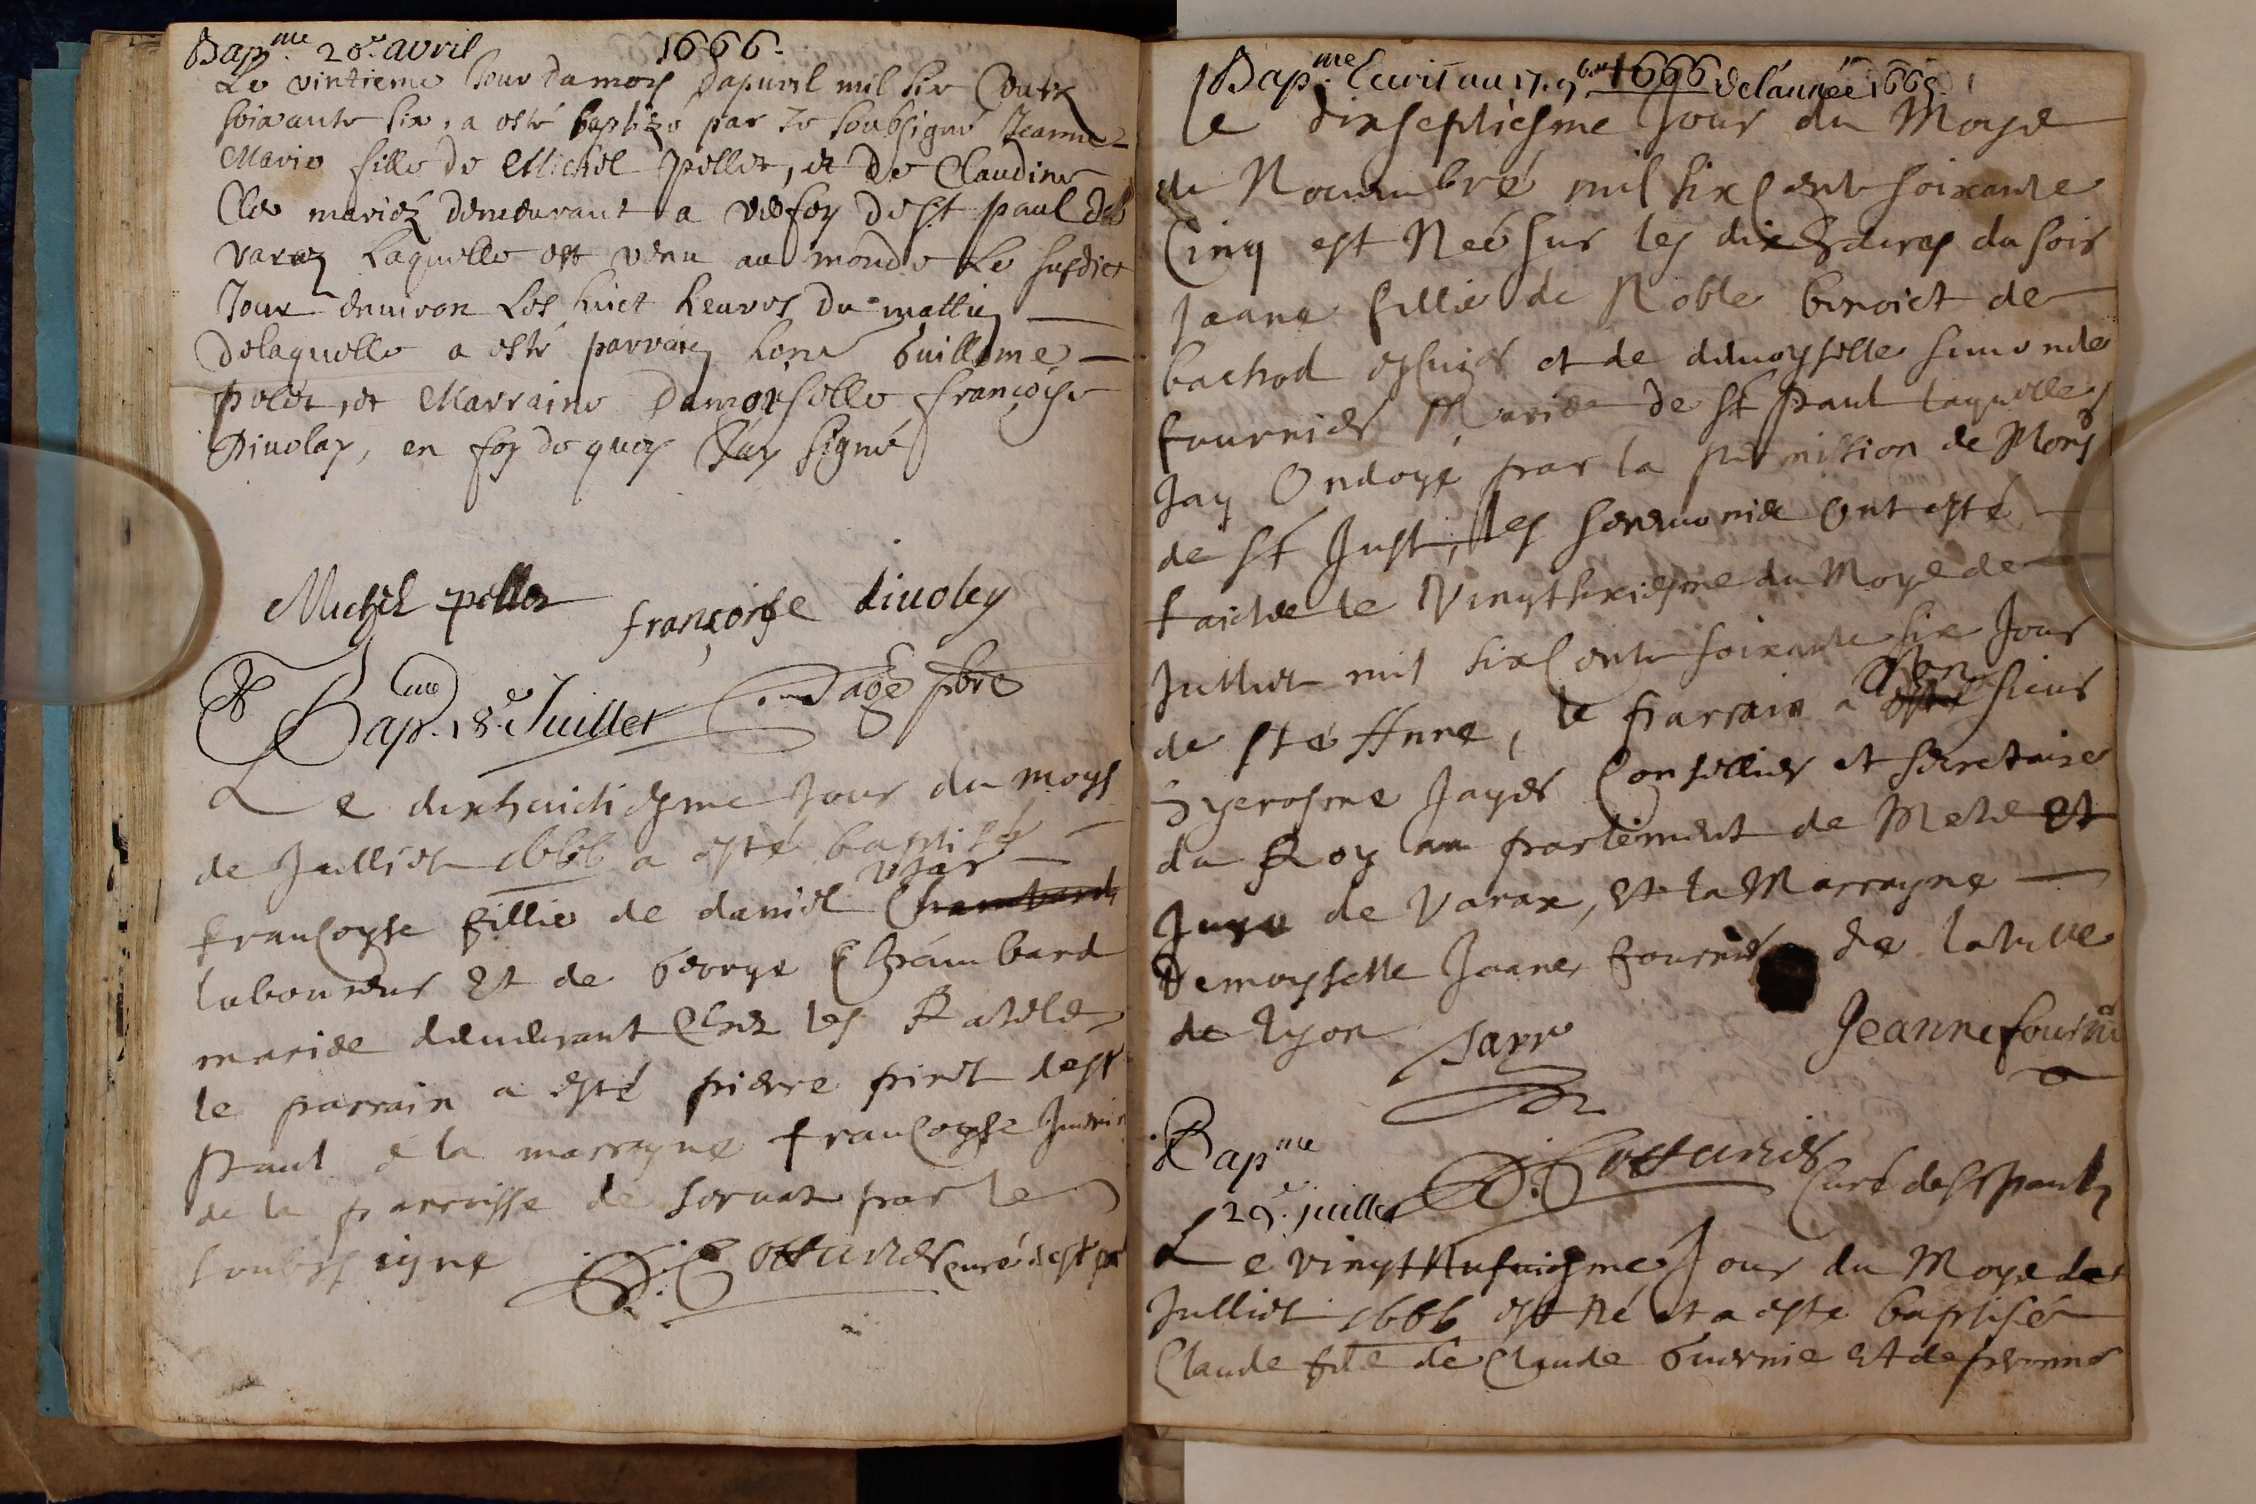 Bap.me 20.e avril 1666.
Le vintieme Jour du moys Dapvril mil six Cents
soixante six, a esté baptizé par Je soubsigné Jeanne
Marie fille de Michel pellet, et de Claudine
Cler mariéz demeurant a vesfey de st paul de
varaz laquelle est venu au monde Le susdict
Jour environ Les huict heures Du mattin
Delaquelle a esté parrain hone Guillome
pelet, et Marraine Damoyselle françoise
Divoley, en foy de quoy J'ay signé
Michel pellet françoise divoley
pbre
Bap.me 18.e Juillet
Le dixhuictiesme Jour du moys
de Julliet 1666 a esté baptisé
francoyse fillie de daniel Chambard
laboureur Et de George Chambard
mariée demeurant Chez les
le parrain a esté pierre piret de st
Paul & la marrayne francoyse
de la parroisse de servat par le
soubssigne Cottarier curé de st pol
Bap.me Ecrit au 17. 9bre 1666 de l'année 1665.
le dixseptiesme Jour du Moys
de Novembre mil six Cents soixante
Cinq est Neé sur les dix heures du soir
Jeane fillie de Noble benoict de
bachod escuier et de demoyselle simonde
fournier Mariée de st Paul laquelle
Jay Ondoyé par la permission de Monsr
de st Just, les seremonie Ont esté
faicte le Vingtsixiesme du Moys de
Julliet mil six Cents soixante six Jour
de ste Anne, le parrain a esté sieur
hyerosme Jayer Consellier et secretaire
du Roy au parlement de Mets Et
Juge de Varax, Et la Marrayne
Demoyselle Jeane fournier de la ville
de lyon
Jeanne fournier
Bap.me
29.e juillet Cottarier Curé de st paul
Le vingt Neufviesme Jour du Moys de
Julliet 1666 est né et a esté baptisé
Claude fils de Claude Guernie Et de pernne